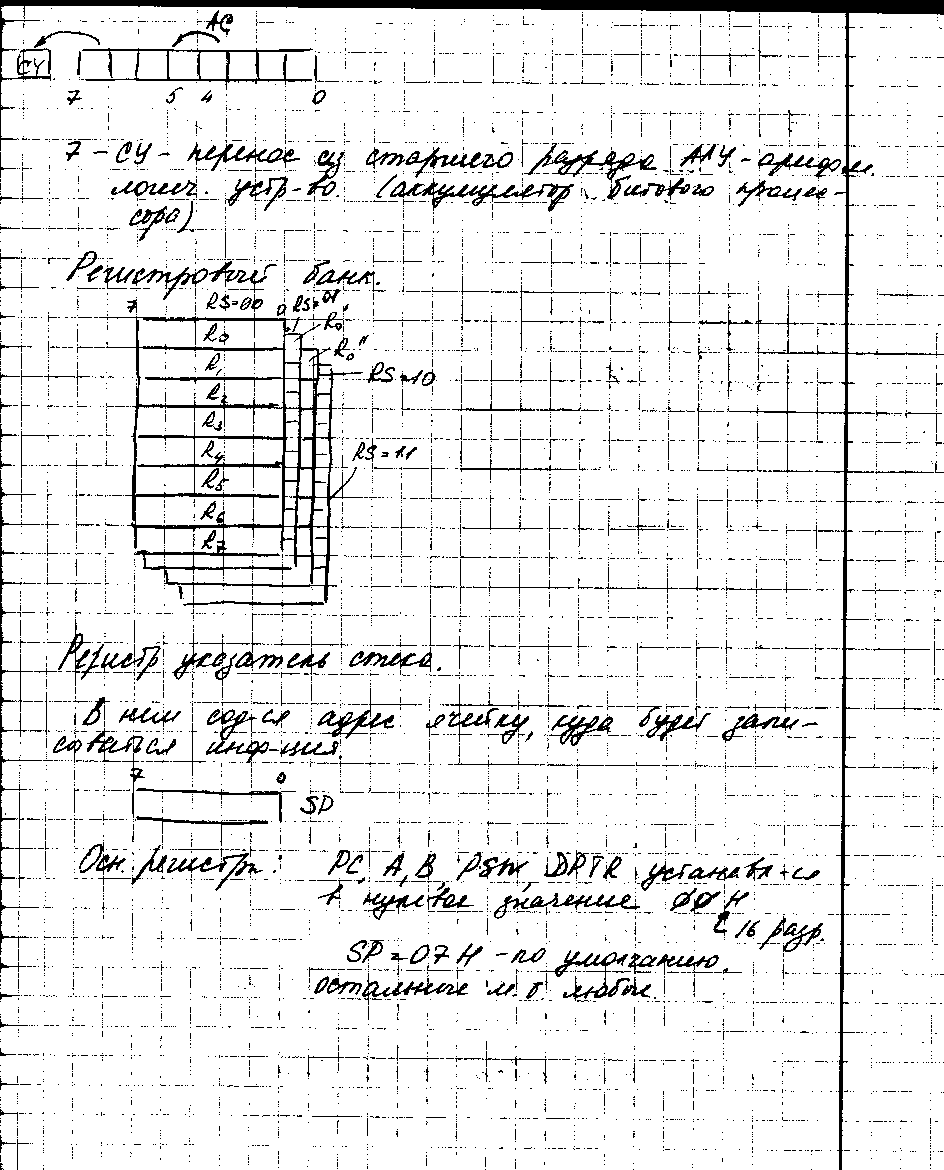 AC
CY
7 5 4 0
7 – CY – перенос из старшего разряда АЛУ – арифм.
логич. устр-во. (аккумулятор битового процес-
сора)
Регистровый банк.
7 RS=00 0 RS=01
R0 R0'
R1 R0"
RS=10
R2
R3
R4 RS=11
R5
R6
R7
Регистр указатель стека.
В нем сод-ся адрес ячейку, куда будет запи-
сываться инф-ция.
7 0
SP
Осн. регистры: PC, A, B, PSW, DPTR установл-ся
в нулевое значение 00H
16 разр.
SP = 07H – по умолчанию.
остальные м. б любые